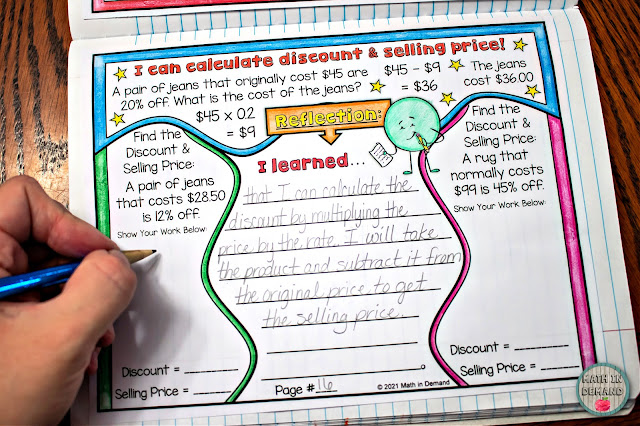 I can calculate discount & selling price!
A pair of jeans that originally cost $45 are
20% off. What is the cost of the jeans?
$45 × 0.2
= $9
$45 - $9
= $36
The jeans
cost $36.00
Reflection:
Find the
Discount &
Selling Price:
A pair of jeans
that costs $28.50
is 12% off.
Show Your Work Below:
Discount =
Selling Price =
I learned...
that I can calculate the
discount by multiplying the
price by the rate. I will take
the product and subtract it from
the original price to get
the selling price.
Page # 16
© 2021 Math in Demand
Find the
Discount &
Selling Price:
A rug that
normally costs
$99 is 45% off.
Show Your Work Below:
Discount =
Selling Price =
MATH IN
DEMAND